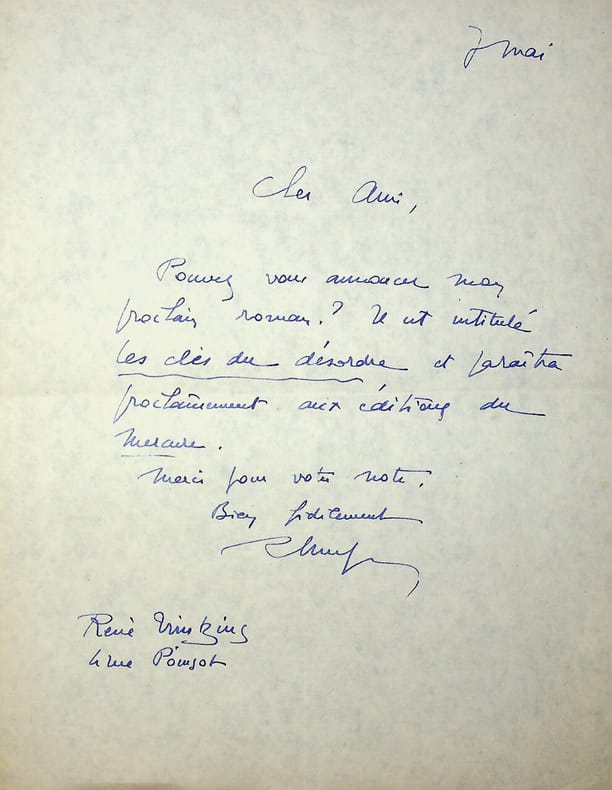 7 mai
Cher Ami,
Pouvez vous annoncer mon
prochain roman ? Il est intitulé
les clés du désordre et paraîtra
prochainement aux éditions du
Mercure.
Merci pour votre note.
Bien fidèlement
René
4 rue Poinsot